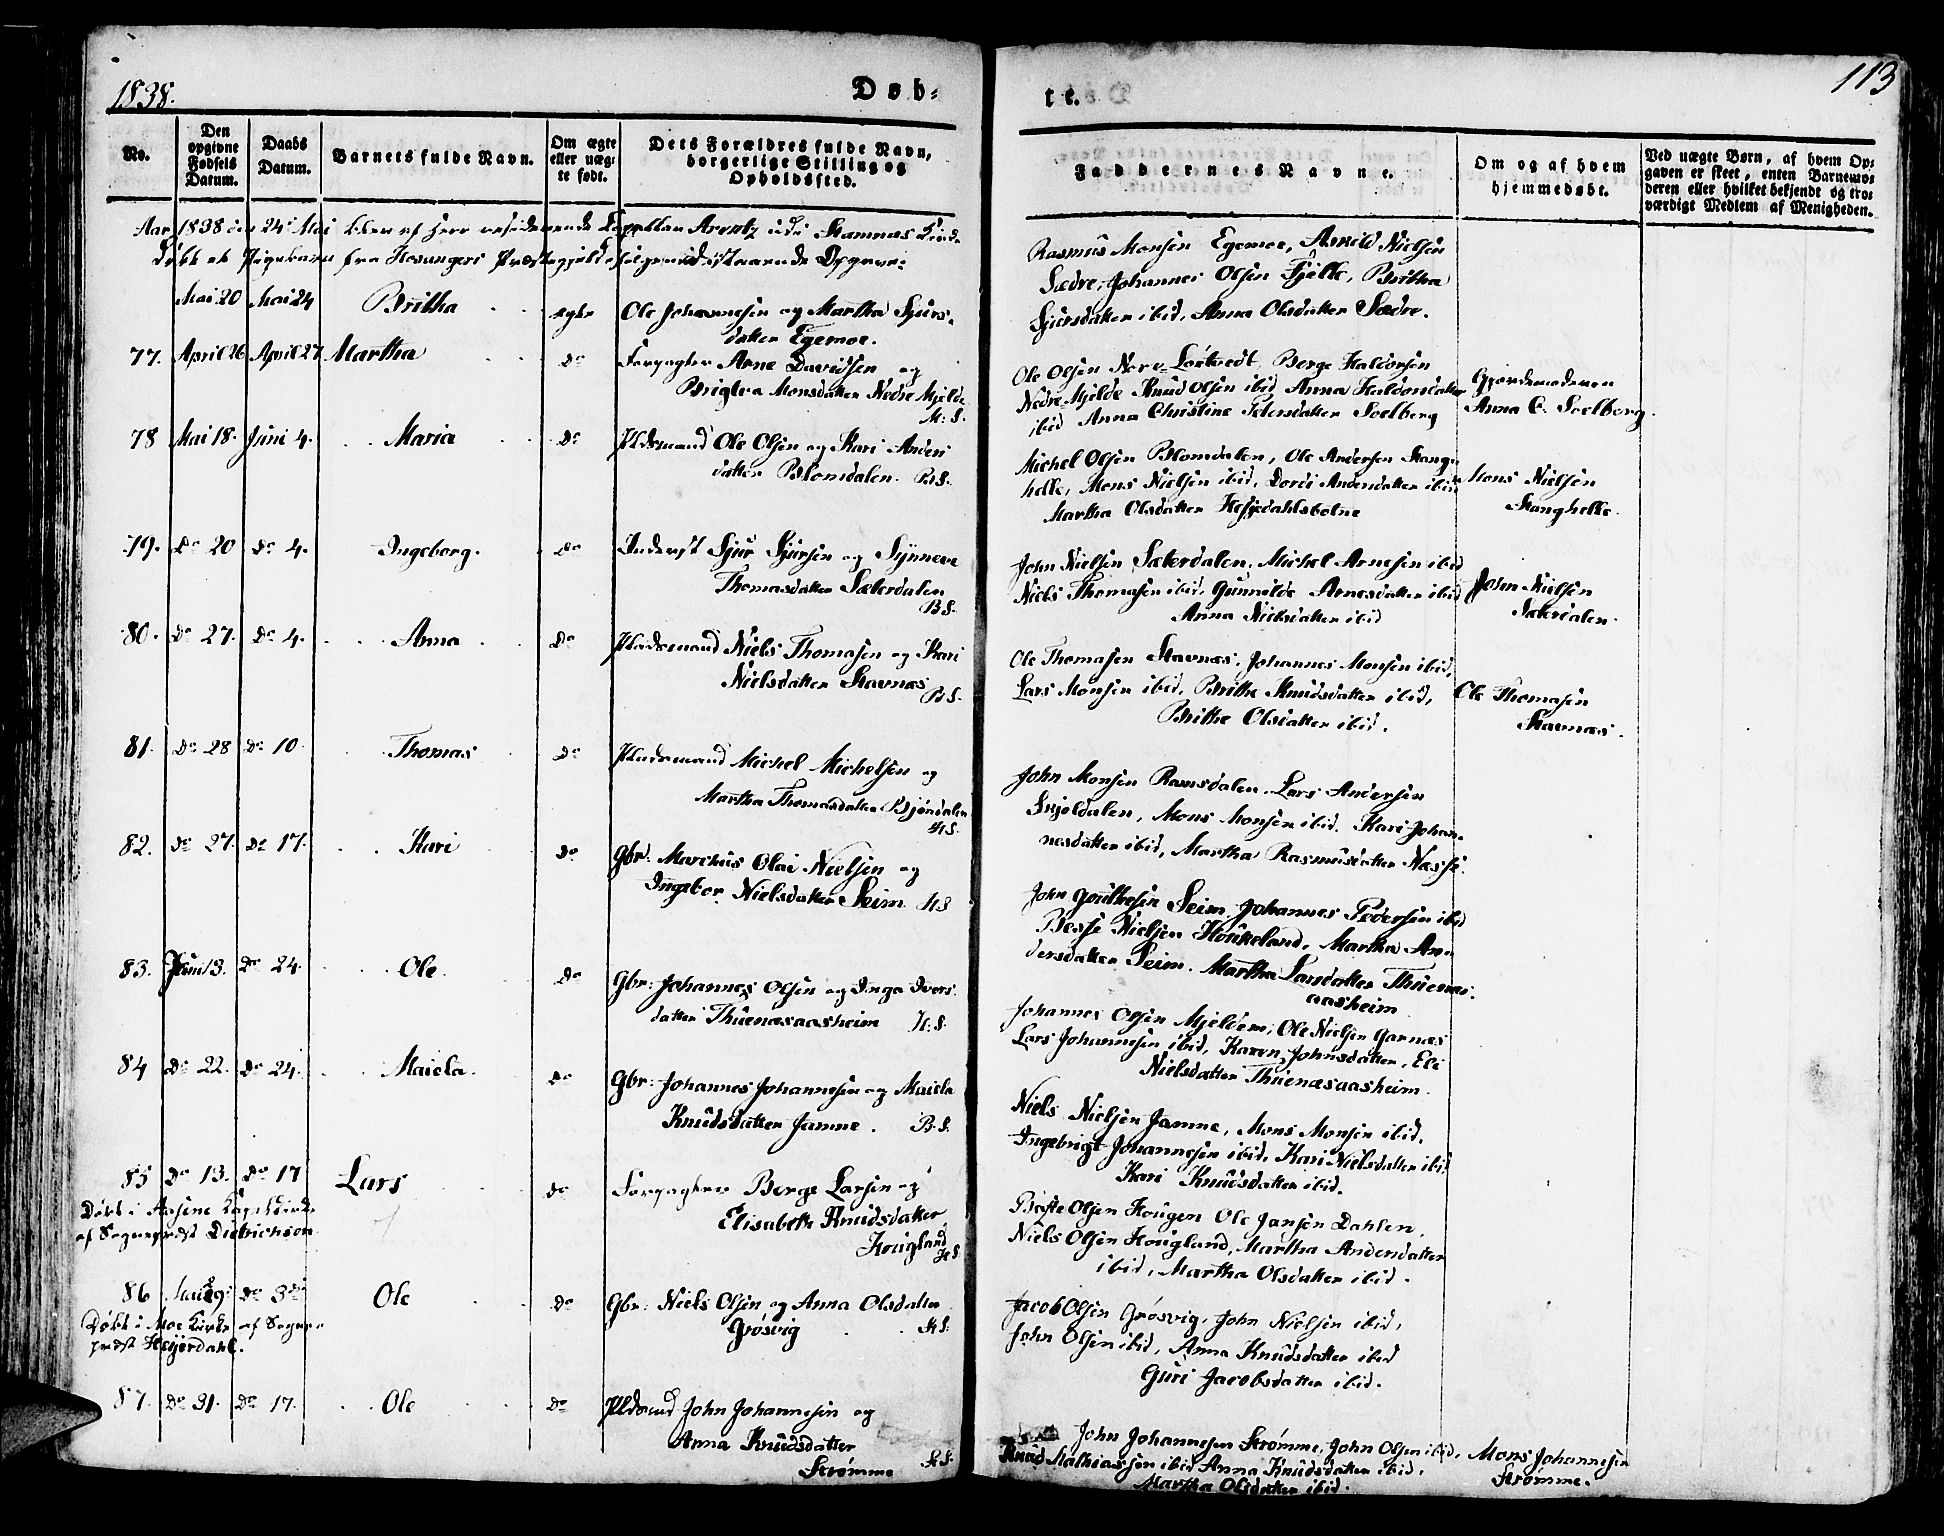 1838.
Døb-
No.
Den opgivne Fødsels Datum.
Daabs Datum.
Barnets fulde Navn.
Om ægte eller uæg-te født.
Dets Forældres fulde Navn, borgerlige Stilling og Opholdssted.
Aar 1838 den 24 Mai blev af Herr residerende Capellan Arentz udi Stamnæs Kirke
Døbt et Pigebarn fra Hosangers Præstegjeld
Mai 20 Mai 24 Britha ægte Ole Johannesen og Martha Sjurs-
datter Egemoe.
77. April 26 April 27 Martha do Forpagter Arne Davidsen og
Brigtha Monsdatter Nedre Mjelde
H: S.
78 Mai 18. Juni 4. Maria do Pladsmand Ole Olsen og Kari Anders
datter Blomdalen. B.S.
79. Do 20 Do 4. Ingeborg. do Inderst Sjur Sjursen og Synneve
Thomasdatter Sæterdalen
B.S.
80. Do 27. Do 4. Anna Do Pladsmand Niels Thomasen og Kari
Nielsdatter Stavnæs
B.S.
81. Do 28 Do 10. Thomas Do Pladsmand Michel Michelsen og
Martha Thomasdatter Bjøndalen
H.S.
82. Do 27. Do 17. Kari do Gbr. Marchus Olai Nielsen og
Ingebor Nielsdatter Seim. H.S
83. Juni 3. Do 24. Ole. do Gbr: Johannes Olsen og Inga Ivers
datter Thuenæsaasheim H.S.
84 Do 22. Do 24. Maiela. do Gbr: Johannes Johannesen og Maiela
Knudsdatter Jamne. B.S.
85 Do 13. Do 17 Lars do Forpagter Berge Larsen og
Døbt i Aasene Capelkirke
Elisabeth Knudsdatter
af Sognepræst Dietrichson
Hougland
H.S.
86 Mai 29 Do 3de Ole Do Gbr: Niels Olsen og Anna Olsdatter
Døbt i Moe Kirke af Sogne-
Grøsvig H.S.
præst Heyerdahl.
87. Do 31. Do 17. Ole Do Pldsmd John Johannesen og
Anna Knudsdatter
Strømme H.S.
te.
113
Faddernes Navne.
Om og af hvem hjemmedøbt.
Ved uægte Børn, af hvem Op-
gaven er skeet, enten Barnemo-
deren eller hvilket bekjendt og tro-
værdigt Medlem af Menigheden.
Rasmus Monsen Egemoe, Arnid Nielsen
Sædre, Johannes Olsen Fjelle, Britha
Sjursdatter ibid, Anna Olsdatter Sædre.
Ole Olsen Nere Lortvedt, Berge Haldorsen
Nedre Mjelde Knud Olsen ibid, Anna Haldorsdatter
ibid Anna Christine Petersdatter Soelberg
Gjordemoderen
Anna C. Soelberg.
Michel Olsen Blomdalen, Ole Andersen Stang-
helle, Mons Nielsen ibid, Dordi Andersdatter ibid
Martha Olsdatter Hesjedahlsbotne
Mons Nielsen
Stanghelle.
John Nielsen Sæterdalen. Michel Arnesen ibid
Niels Thomasen ibid, Gunnilde Arnesdatter ibid
Anna Nielsdatter ibid
John Nielsen
Sæterdalen.
Ole Thomasen Stavnæs, Johannes Monsen ibid,
Lars Monsen ibid, Britha Knudsdatter ibid,
Britha Olsdatter ibid.
Ole Thomasen
Stavnæs.
John Monsen Ramsdalen. Lars Andersen
Skjoldalen, Mons Monsen ibid. Kari Johan-
nesdatter ibid, Martha Rasmusdatter Næsse.
John Gouthesen Seim, Johannes Pedersen ibid
Besse Nielsen Houkeland, Martha An-
dersdatter Seim. Martha Larsdatter Thuenæs-
aasheim
Johannes Olsen Mjeldem, Ole Nielsen Garnæs
Lars Johannesen ibid, Karen Johnsdatter, Eli
Nielsdatter Thuenæsaasheim.
Niels Nielsen Jamne, Mons Monsen ibid.
Ingebrigt Johannesen ibid. Kari Nielsdatter ibid
Kari Knudsdatter ibid.
Olsen Hougen Ole Jansen Dahlen,
Niels Olsen Hougland, Martha Andersdatter
ibid, Martha Olsdatter ibid.
Jacob Olsen Grøsvig, John Nielsen ibid,
John Olsen ibid, Anna Knudsdatter ibid
Guri Jacobsdatter ibid.
John Johannesen Strømme, John Olsen ibid.
Knud Mathiassen ibid Anna Knudsdatter ibid.
Martha Olsdatter ibid.
Mons Johannesen
Strømme.